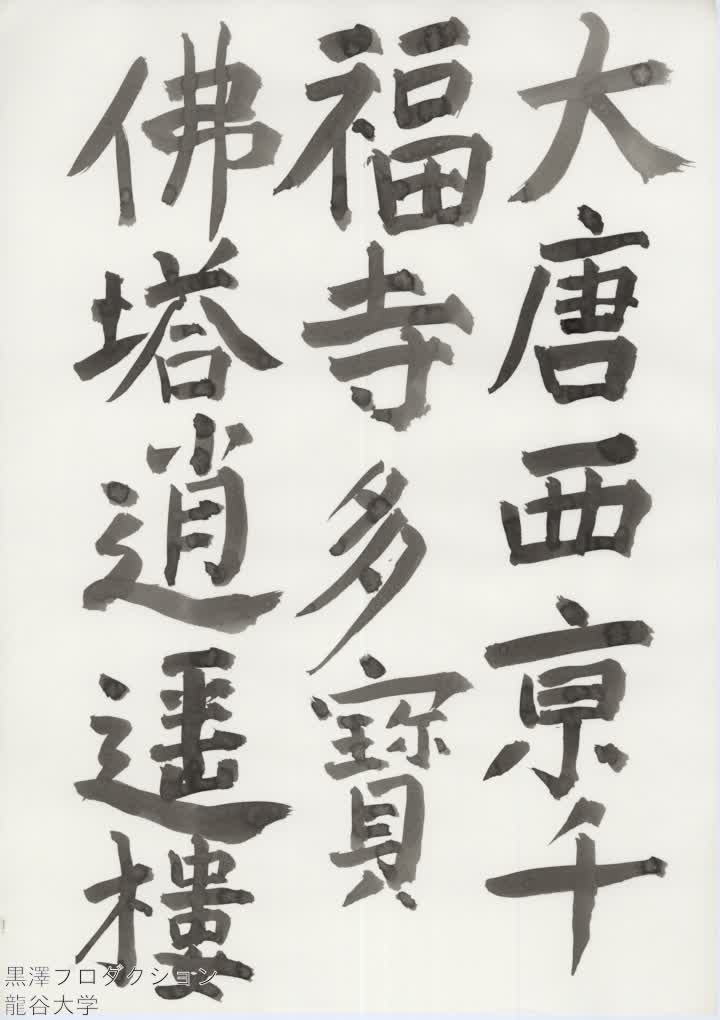 大唐西京千
福寺多寶
佛塔逍遥樓
黒澤プロダクション
龍谷大学